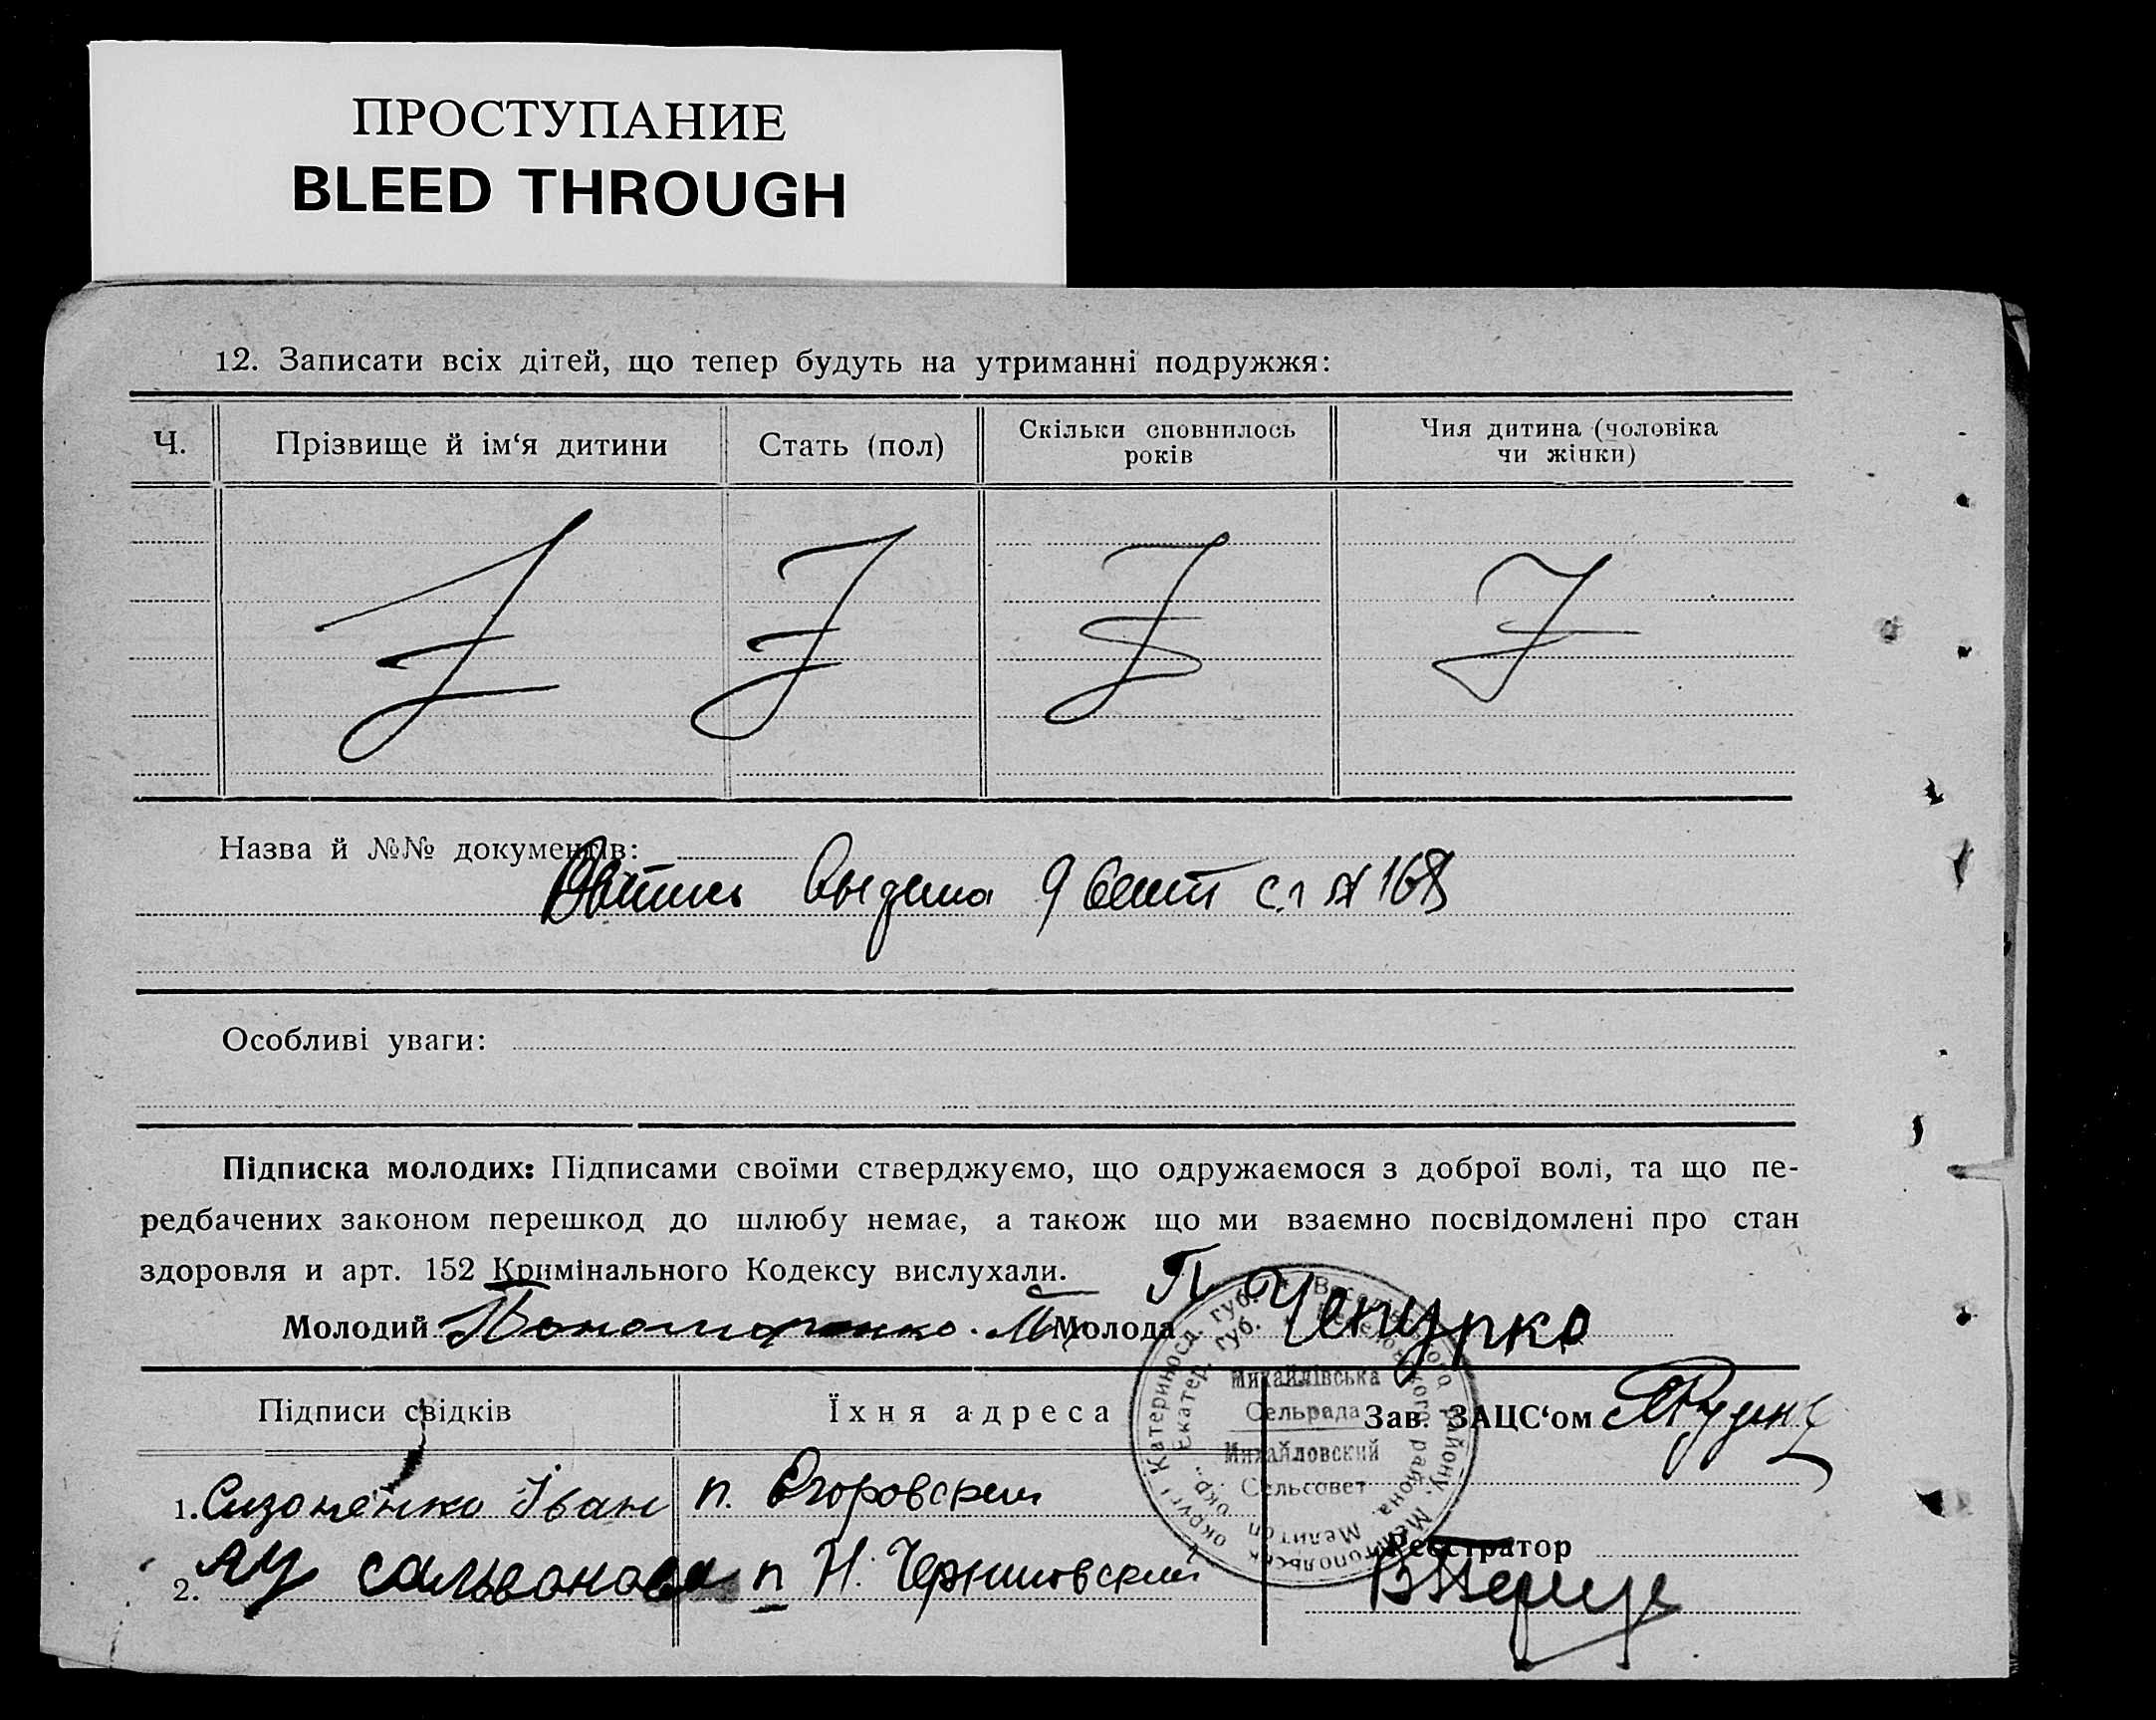 ПРОСТУПАНИЕ
BLEED THROUGH
12. Записати всіх дітей, що тепер будуть на утриманні подружжя:
Ч.
Прізвище й ім‘я дитини
Стать (пол)
Скільки сповнилось
років
Чия дитина (чоловіка
чи жінки)
Назва й №№ документів:
выдана 9 с.г № 168
Особливі уваги:
Підписка молодих: Підписами своїми стверджуємо, що одружаємося з доброї волі, та що пе-
редбачених законом перешкод до шлюбу немає, а також що ми взаємно посвідомлені про стан
здоровля и арт. 152 Кримінального Кодексу вислухали.
Молодий Пономаренко. М Молода П. Чепурко
Підписи свідків
Їхня адреса
Михайлівська
Сельрада
Михайловский
Сельсовет
Зав. ЗАЦС‘ом
1. Сизоненко Іван п. Єгоровский
2. п Н. Черниговский
Реєстратор